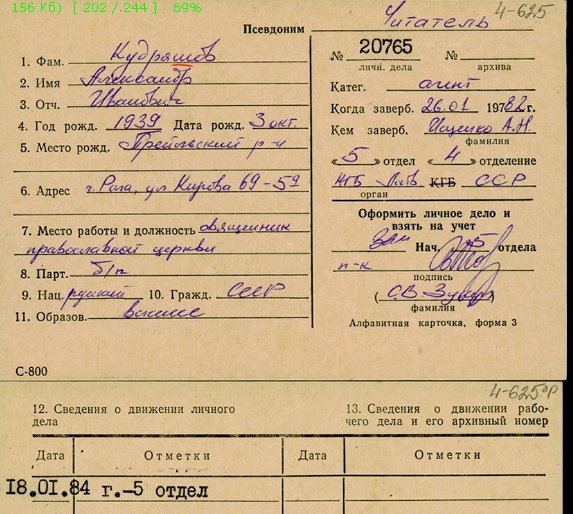 156 Кб) [ 202 / 244 ] 69%
4-625
Псевдоним Читатель
1. Фам. Кудряшов
2. Имя Александр
3. Отч. Иванович
4. Год рожд. 1939 Дата рожд. 3 окт
5. Место рожд. Прейльский р-н
6. Адрес г. Рига, ул Кирова 69-59
7. Место работы и должность священник
православной церкви
8. Парт. б/п
9. Нац. русский 10. Гражд. СССР
11. Образов. высшее
С-800
№ 20765 №
личн. дела архива
Катег. агент
Когда заверб. 26.01 1982 г.
Кем заверб. Ищенко А.Н.
фамилия
«5» отдел «4» отделение
КГБ Латв КГБ ССР
орган
Оформить личное дело и
взять на учет
Зам Нач. 5 отдела
п-к
подпись
(С.В.)
фамилия
Алфавитная карточка, форма 3
4-625 ор
12. Сведения о движении личного
дела
13. Сведения о движении рабо-
чего дела и его архивный номер
Дата Отметки Дата Отметки
18.01.84 г.-5 отдел